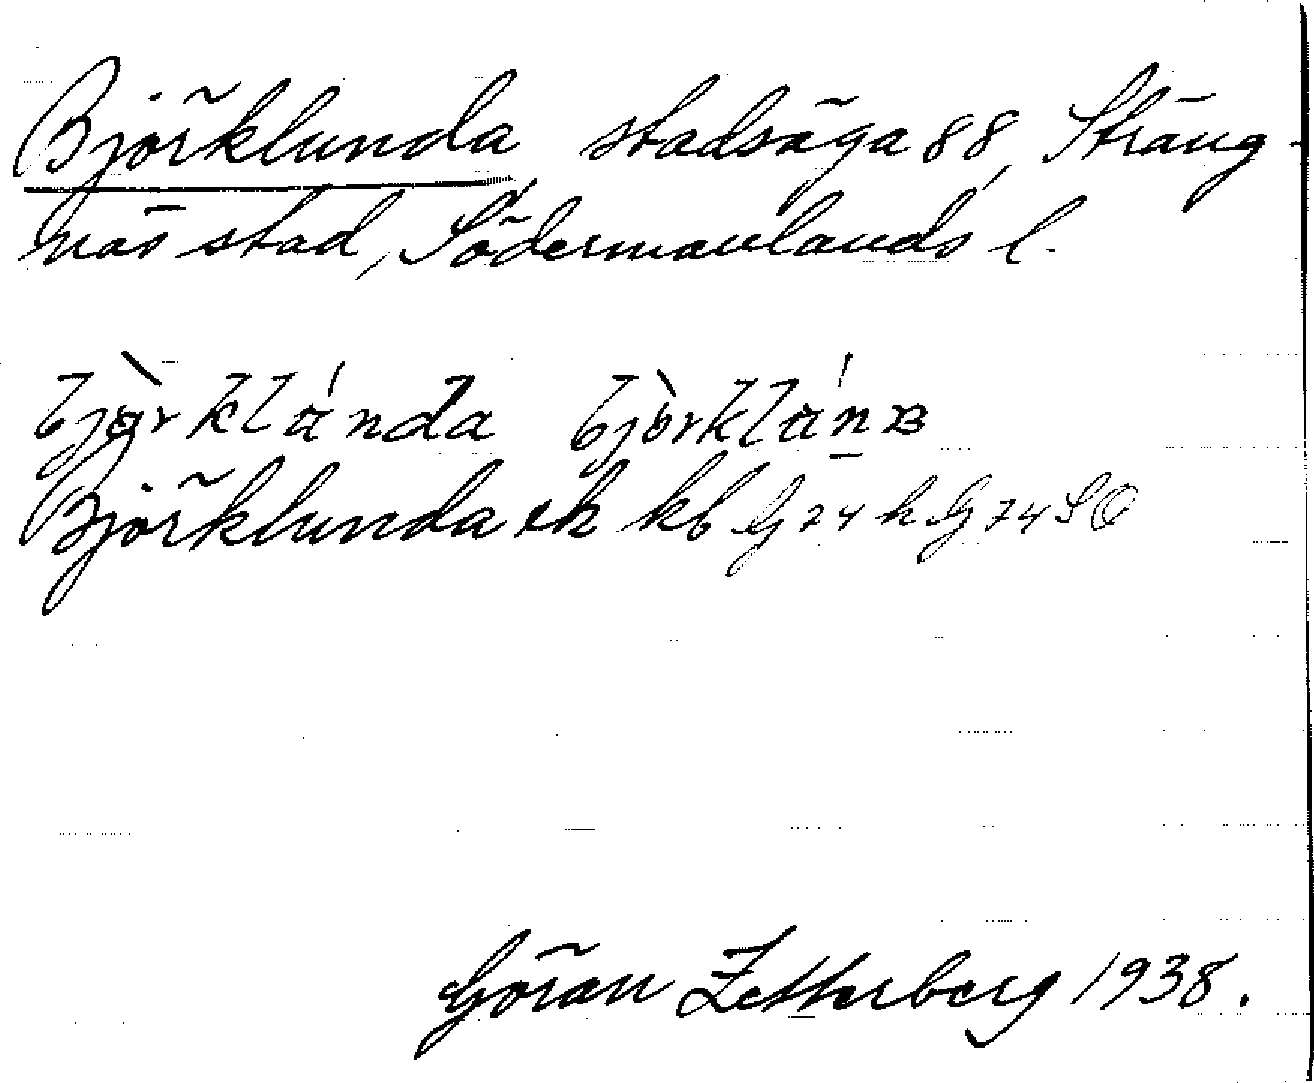 Björklunda stadsäga 88, Sträng-
näs stad, Södermanlands l.
Björklunda ek kb G 24 h G 74 SO
Göran Zetterberg 1938.